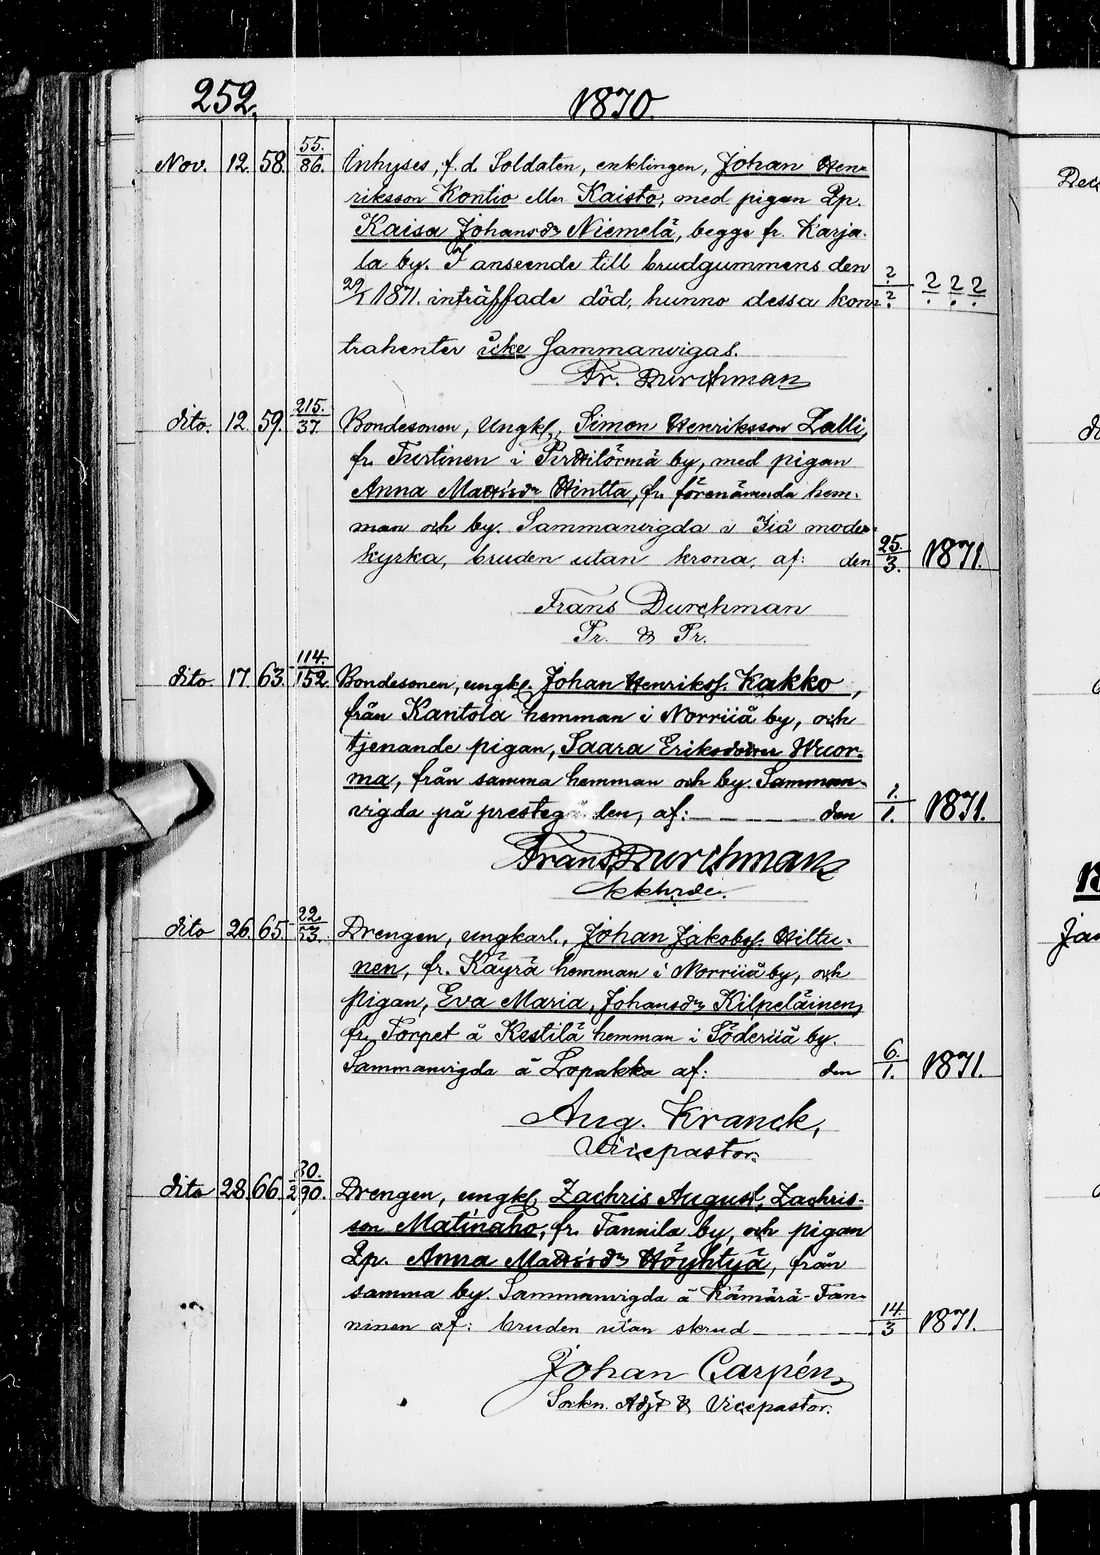 252. 1870.
Nov. 12. 58. 55./86. Inhyses, f. d. Soldaten, enklingen, Johan Hen-
riksson Kontio eller Kaisto, med pigan Qp.
Kaisa Johansdr Niemelä, begge fr. Karja-
la by. I anseende till brudgummens den
29/1 1871. inträffade död, hunno dessa kon- ?/? ? ? ?
trahenter icke Sammanvigas.
Fr. Durchman
dito. 12. 59. 215./37. Bondesonen, Ungkl., Simon Henriksson Lalli,
fr. Turtinen i Pirttitörmä by, med pigan
Anna Mattsdr Hintta, fr. förenämnda hem-
man och by. Sammanvigda i Iiå moder-
kyrka, bruden utan krona, af: den 25./3. 1871.
Frans Durchman
Pr. & Pr.
dito. 17. 63. 114./152. Bondesonen, ungkl. Johan Henriksf. Kakko,
från Kantola hemman i Norriiå by, och
tjenande pigan, Saara Eriksdotter Wuor-
ma, från samma hemman och by. Samman-
vigda på prestegården, af: den 1./1. 1871.
Frans Durchman
dito 26. 65. 22./53. Drengen, ungkarl., Johan Jakobsf. Hiltu-
nen, fr. Käyrä hemman i Norriiå by, och
pigan, Eva Maria, Johansdr Kilpeläinen,
fr. Torpet å Kestilä hemman i Söderiiå by.
Sammanvigda å Lopakka af: den 6./1. 1871.
Aug. Kranck,
Vicepastor.
dito 28. 66. 30./290. Drengen, ungkl. Zachris August, Zachris-
son Matinaho, fr. Tannila by, och pigan
Qp. Anna Mattsdr Höyhtyä, från
samma by. Sammanvigda å Kämärä-Tan-
ninen af: bruden utan skrud 14./3 1871.
Johan Carpén,
Sockn. Adjt & Vicepastor.